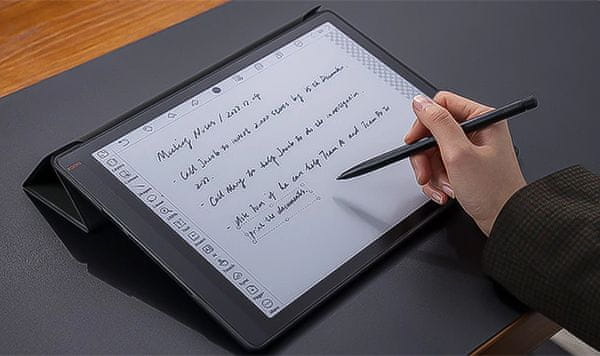 Meeting Notes / 2023.12.04
- Call Jacob to invest 2000 euros by 15th December
2023.
- Call Mary to help Jacob to do the investigation
- Ask Tom if he can help Team A and Team B to
print the documents.